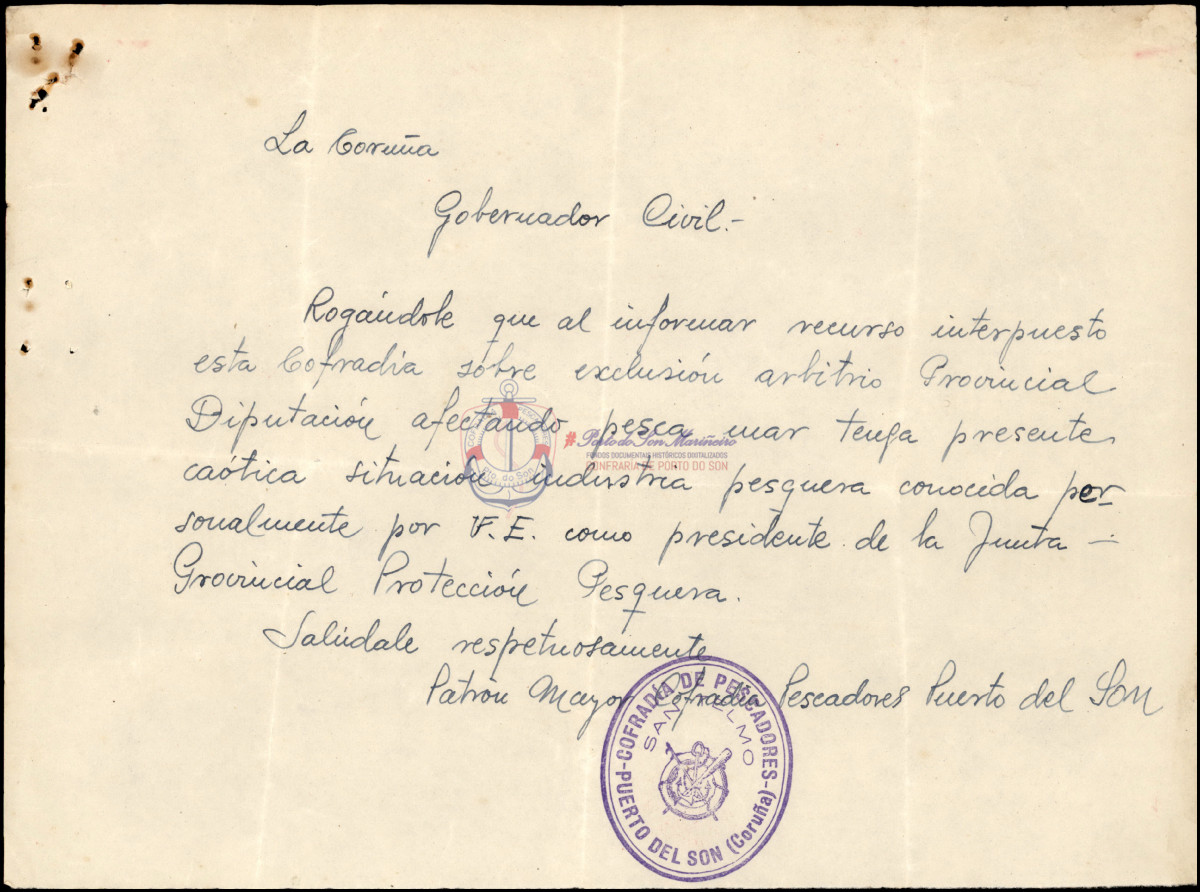 La Coruña
Gobernador Civil.-
Rogándole que al informar recurso interpuesto
esta Cofradía sobre exclusión arbitrio Provincial
Diputación afectando pesca mar tenga presente
caótica situación industria pesquera conocida per-
sonalmente por V.E. como presidente de la Junta -
Provincial Protección Pesquera.
Salúdale respetuosamente
Patrón Mayor Cofradía Pescadores Puerto del Son
#Porto do Son Mariñeiro
FONDOS DOCUMENTAIS HISTÓRICOS DIGITALIZADOS
CONFRARÍA DE PORTO DO SON
Pto. do Son
-COFRADÍA DE PESCADORES-
SAN TELMO
PUERTO DEL SON (Coruña)